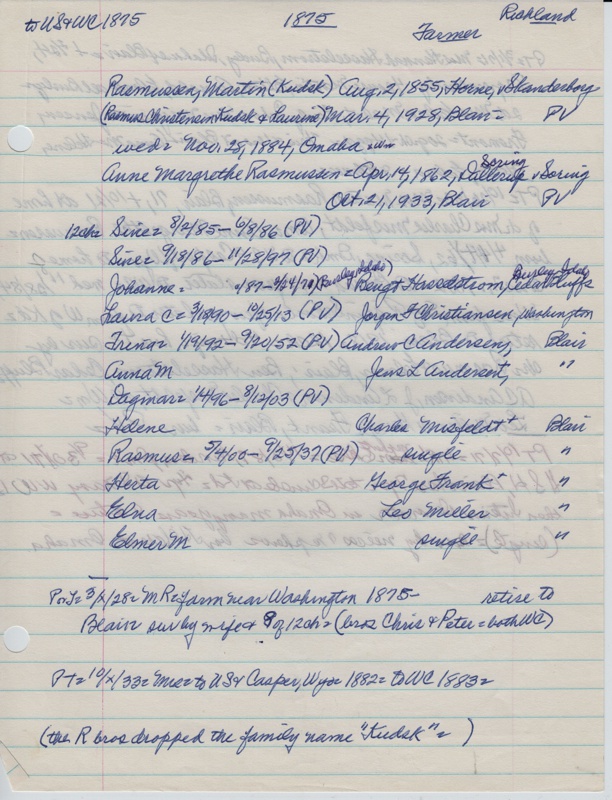 to US & WC 1875 1875 Richland
Farmer
Rasmussen, Martin (Kudsk) Aug. 2, 1855, Horne, v Skanderborg
(Rasmus Christensen Kudsk & Laurine) Mar. 4, 1928, Blair = PV
wed = Nov. 28, 1884, Omaha
Anne Margrethe Rasmussen = Apr. 14, 1862, Dallerup v Soring
Soring
Oct. 2, 1933, Blair PV
12ch = Sine = 8/2/85 - 6/8/86 (PV)
Sine = 9/18/86 - 11/28/97 (PV)
Johanne = /87 - 9/24/71 (Bengt Hasselstrom, Cedar Bluffs
Laura C = 3/18/90 - 10/25/13 (PV) Jorgen F Christiansen, Washington
Trena = 1/19/92 - 9/20/52 (PV) Andrew C Andersen, Blair
Anna M Jens L Andersen, "
Dagmar = 1/4/96 - 8/12/03 (PV)
Helene Charles Misfeldt + Blair
Rasmus = 5/4/00 - 9/25/37 (PV) single "
Herta George Frank + "
Edna Leo Miller "
Elmer M single "
P or T = 3/x/28 = MR = farm near Washington 1875 - retire to
Blair = sur by wife & 9 of 12ch = (bros Chris & Peter = both WC)
PT = 10/x/33 = Mrs = to US & Casper, Wyo = 1882 = to WC 1883 =
(the R bros dropped the family name "Kudsk" = )